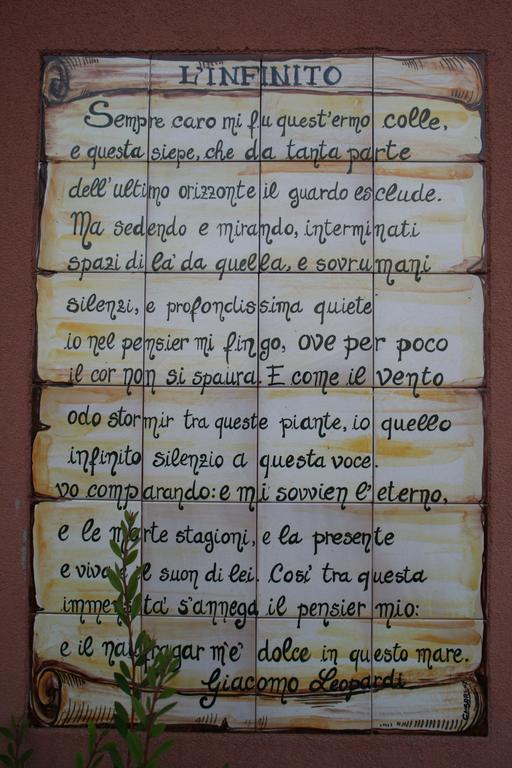 L'INFINITO
Sempre caro mi fu quest'ermo colle,
e questa siepe, che da tanta parte
dell'ultimo orizzonte il guardo esclude.
Ma sedendo e mirando, interminati
spazi di la' da quella, e sovrumani
silenzi, e profondissima quiete
io nel pensier mi fingo, ove per poco
il cor non si spaura. E come il vento
odo stormir tra queste piante, io quello
infinito silenzio a questa voce.
vo comparando: e mi sovvien l'eterno,
e le morte stagioni, e la presente
e viva, e il suon di lei. Cosi' tra questa
immensita' s'annega il pensier mio:
e il naufragar m'e' dolce in questo mare.
Giacomo Leopardi